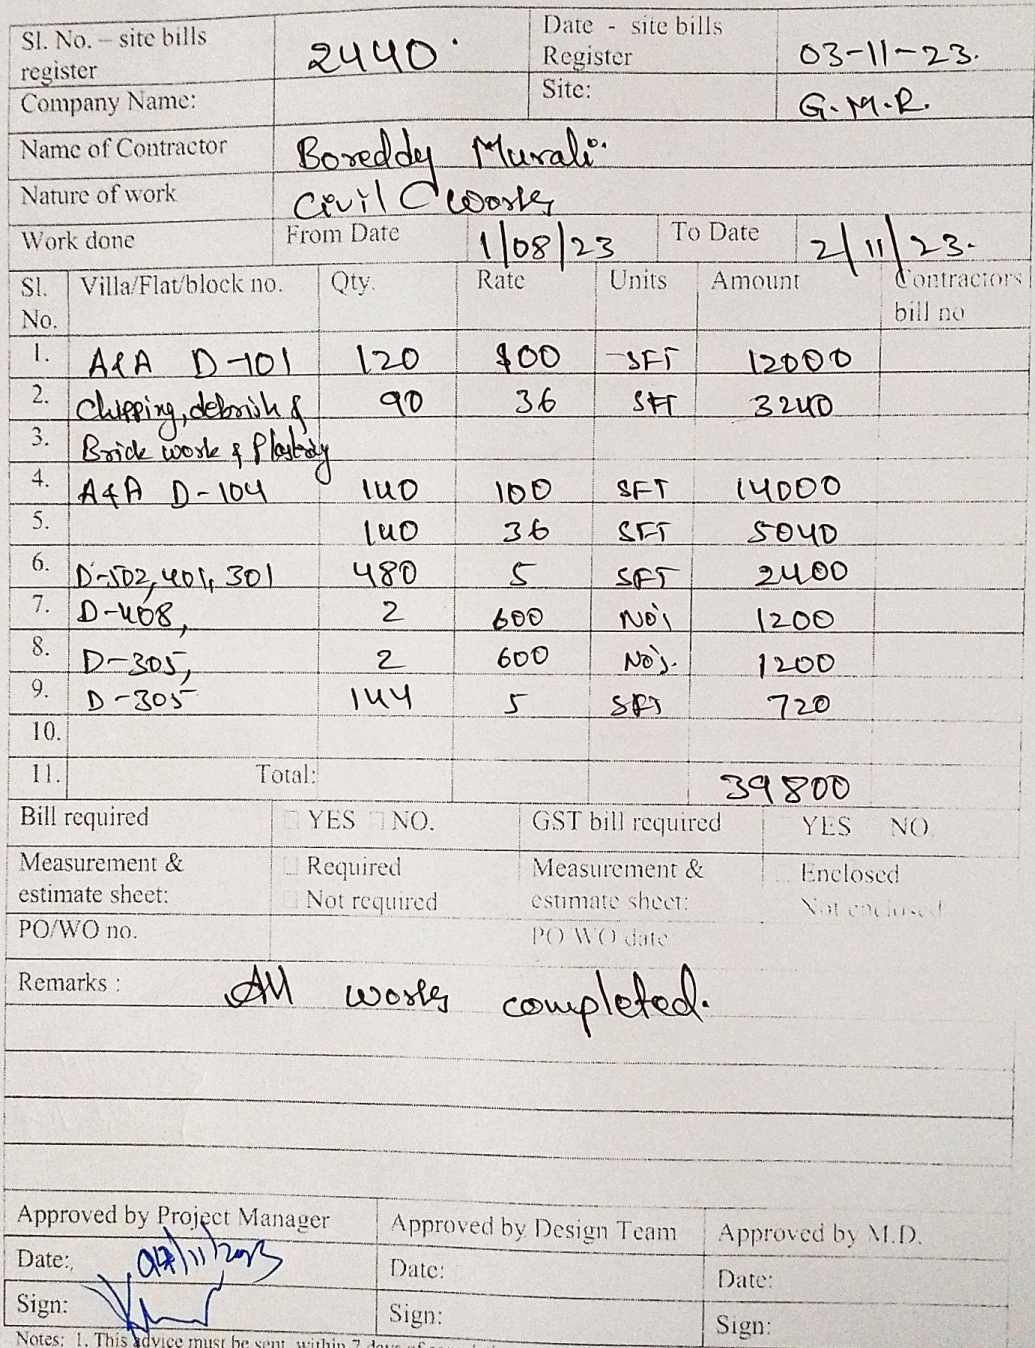 Sl. No. – site bills register 2440. Date - site bills Register 03-11-23.
Company Name: Site: G.M.R.
Name of Contractor Boreddy Murali.
Nature of work Civil C works
Work done From Date 1/08/23 To Date 2/11/23.
Sl. No. Villa/Flat/block no. Qty. Rate Units Amount Contractors bill no
1. A&A D-101 120 100 SFT 12000
2. Chipping, debrish & 90 36 SFT 3240
3. Brick work &
4. A&A D-104 140 100 SFT 14000
5. 140 36 SFT 5040
6. D-502, 401, 301 480 5 SFT 2400
7. D-408, 2 600 No's 1200
8. D-305, 2 600 No's. 1200
9. D-305 144 5 SFT 720
10.
11. Total: 39800
Bill required YES NO. GST bill required YES NO
Measurement & estimate sheet: Required Not required Measurement & estimate sheet: Enclosed Not enclosed
PO/WO no. PO WO date
Remarks : All works completed.
Approved by Project Manager Approved by Design Team Approved by M.D.
Date: Date: Date:
Sign: Sign: Sign:
Notes: 1. This advice must be sent within 7 days of